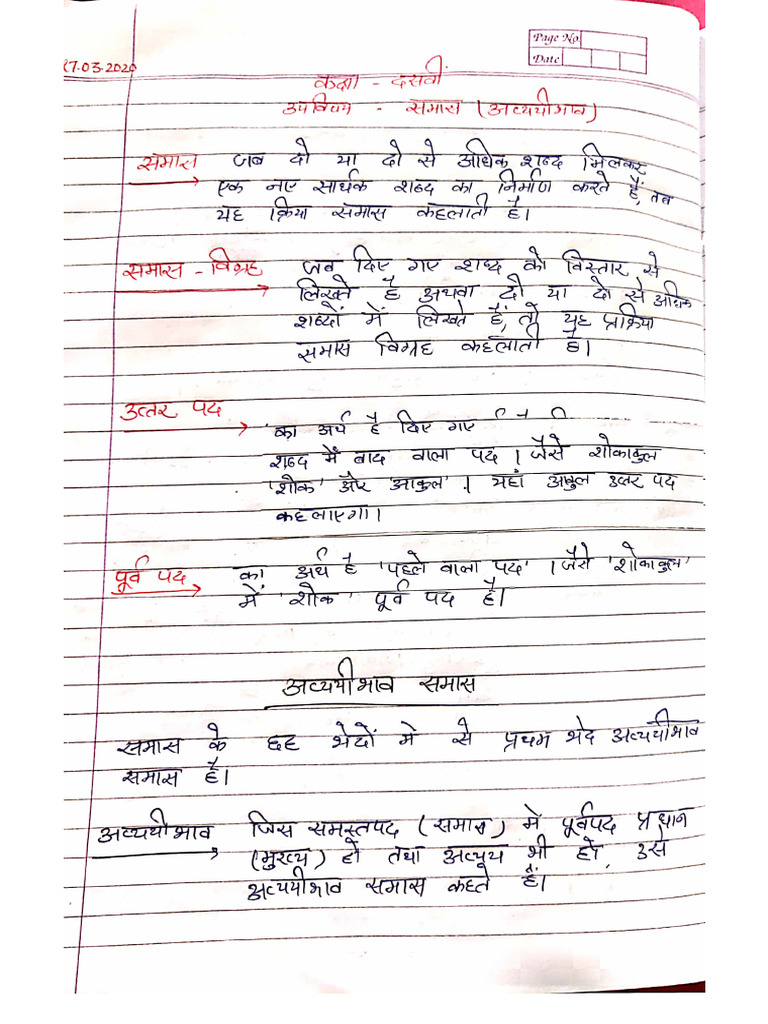 Page No.
Date
17.03.2020
कक्षा - दसवीं
उपविषय - समास (अव्ययीभाव)
समास जब दो या दो से अधिक शब्द मिलकर
एक नए सार्थक शब्द का निर्माण करते हैं, तब
यह क्रिया समास कहलाती है।
समास - विग्रह जब दिए गए शब्द को विस्तार से
लिखते है अथवा दो या दो से अधिक
शब्दों में लिखते हैं, तो यह प्रक्रिया
समास विग्रह कहलाती है।
उत्तर पद
'का अर्थ है दिए गए
शब्द में बाद वाला पद। जैसे शोकाकुल
'शोक' और आकुल'। यहां अकुल उत्तर पद
कहलाएगा।
पूर्व पद का अर्थ है 'पहले वाला पद'। जैसे 'शोकाकुल'
में 'शोक' पूर्व पद है।
अव्ययीभाव समास
समास के छह भेदों मे से प्रथम भेद अव्ययीभाव
समास है।
अव्ययीभाव जिस समस्तपद (समास) मे पूर्वपद प्रधान
(मुख्य) हो तथा अव्यय भी हो, उसे
अव्ययीभाव समास कहते हैं।